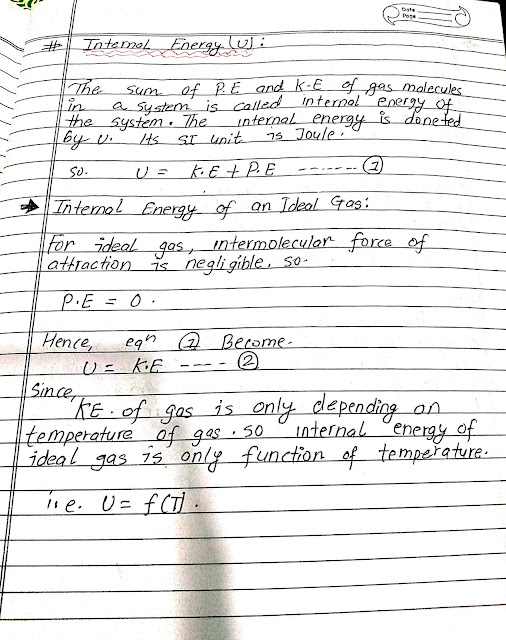 Date
Page
# Internal Energy (U) :
The sum of P.E and K.E of gas molecules
in a system is called internal energy of
the system. The internal energy is doneted
by U. Its SI unit is Joule.
so. U = K.E + P.E ------- ①
→ Internal Energy of an Ideal Gas:
For ideal gas, intermolecular force of
attraction is negligible. so-
P.E = 0 .
Hence, eqn ① Become-
U = K.E ---- ②
Since,
KE. of gas is only depending on
temperature of gas. so internal energy of
ideal gas is only function of temperature.
i.e. U = f(T).